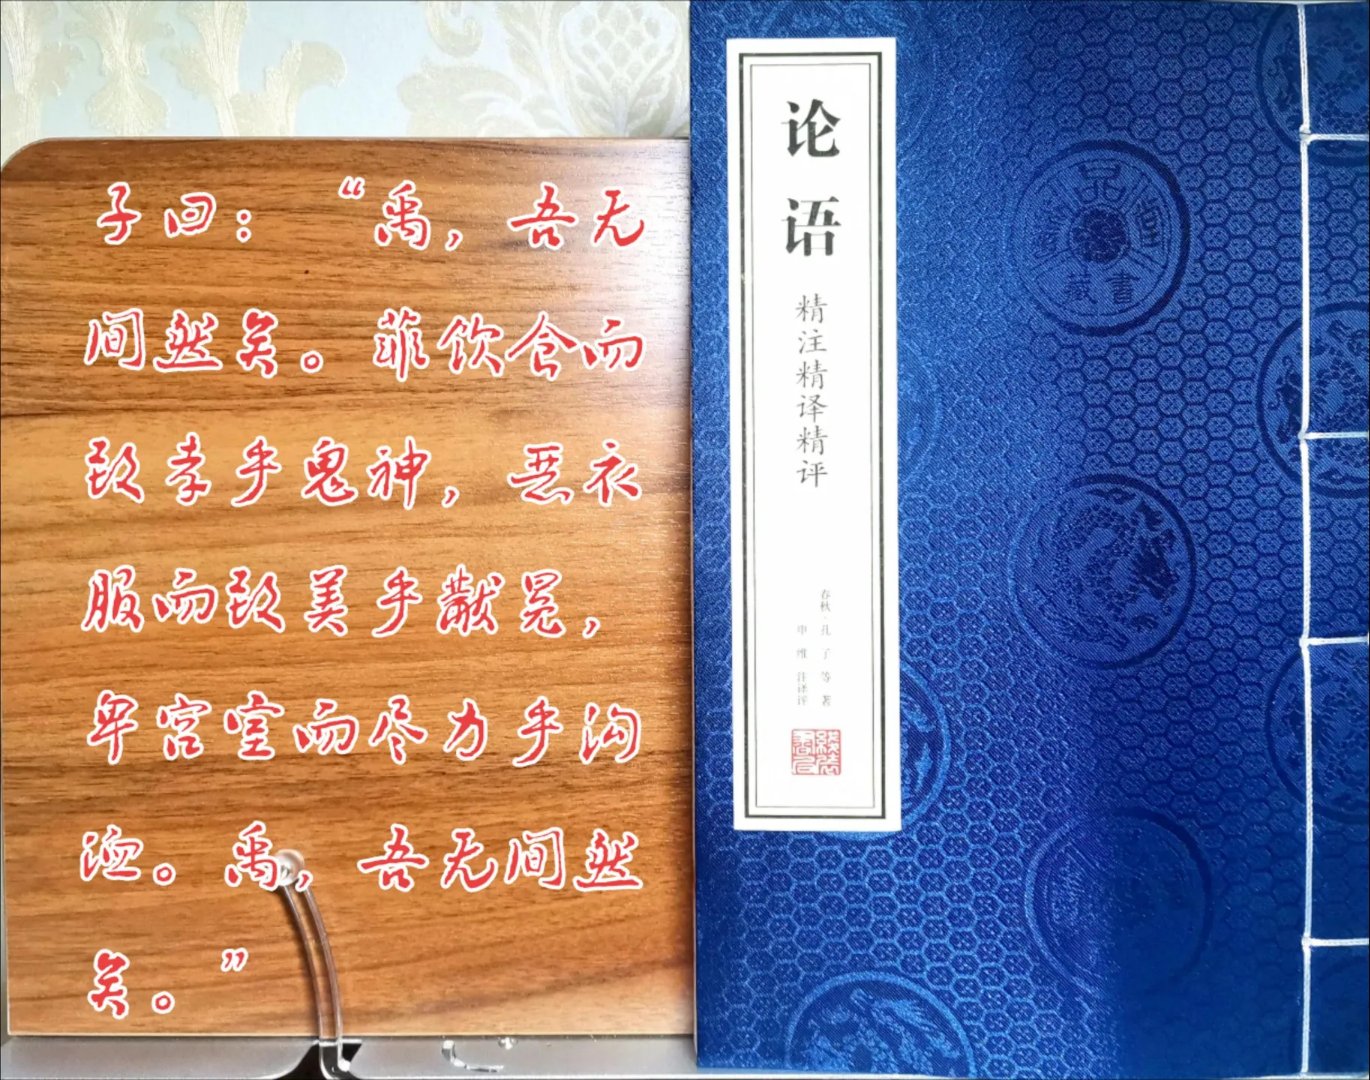 子曰：“禹，吾无
间然矣。菲饮食而
致孝乎鬼神，恶衣
服而致美乎黻冕，
卑宫室而尽力乎沟
洫。禹，吾无间然
矣。”
论语
精注精译精评
春秋·孔子等著
申维 注译评
藏書